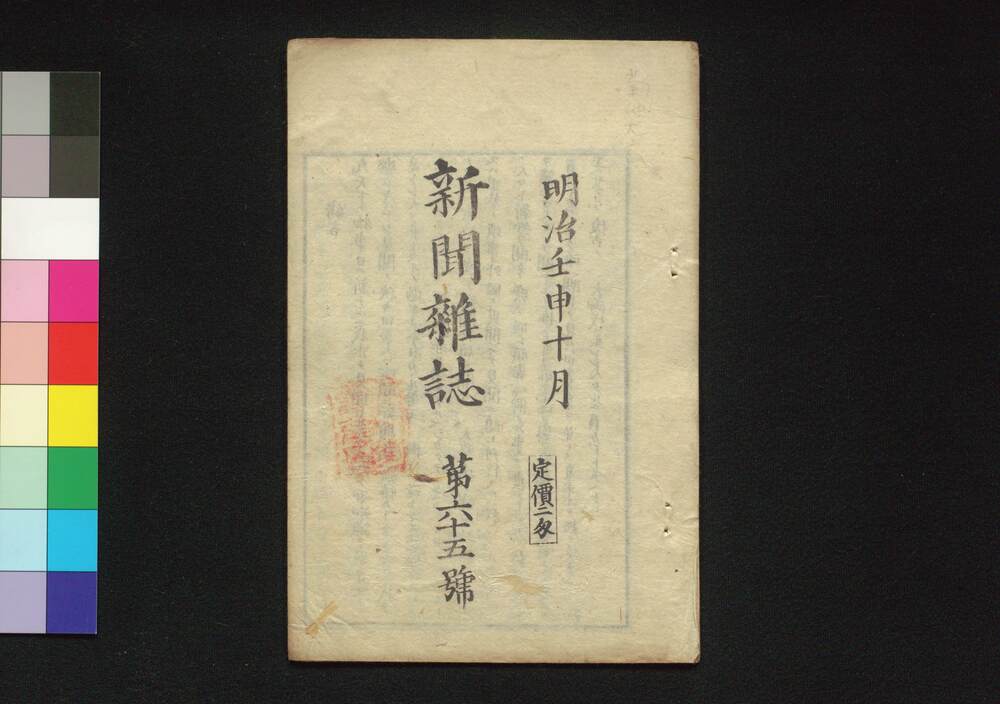 明治壬申十月
定價二匁
新聞雜誌
第六十五號